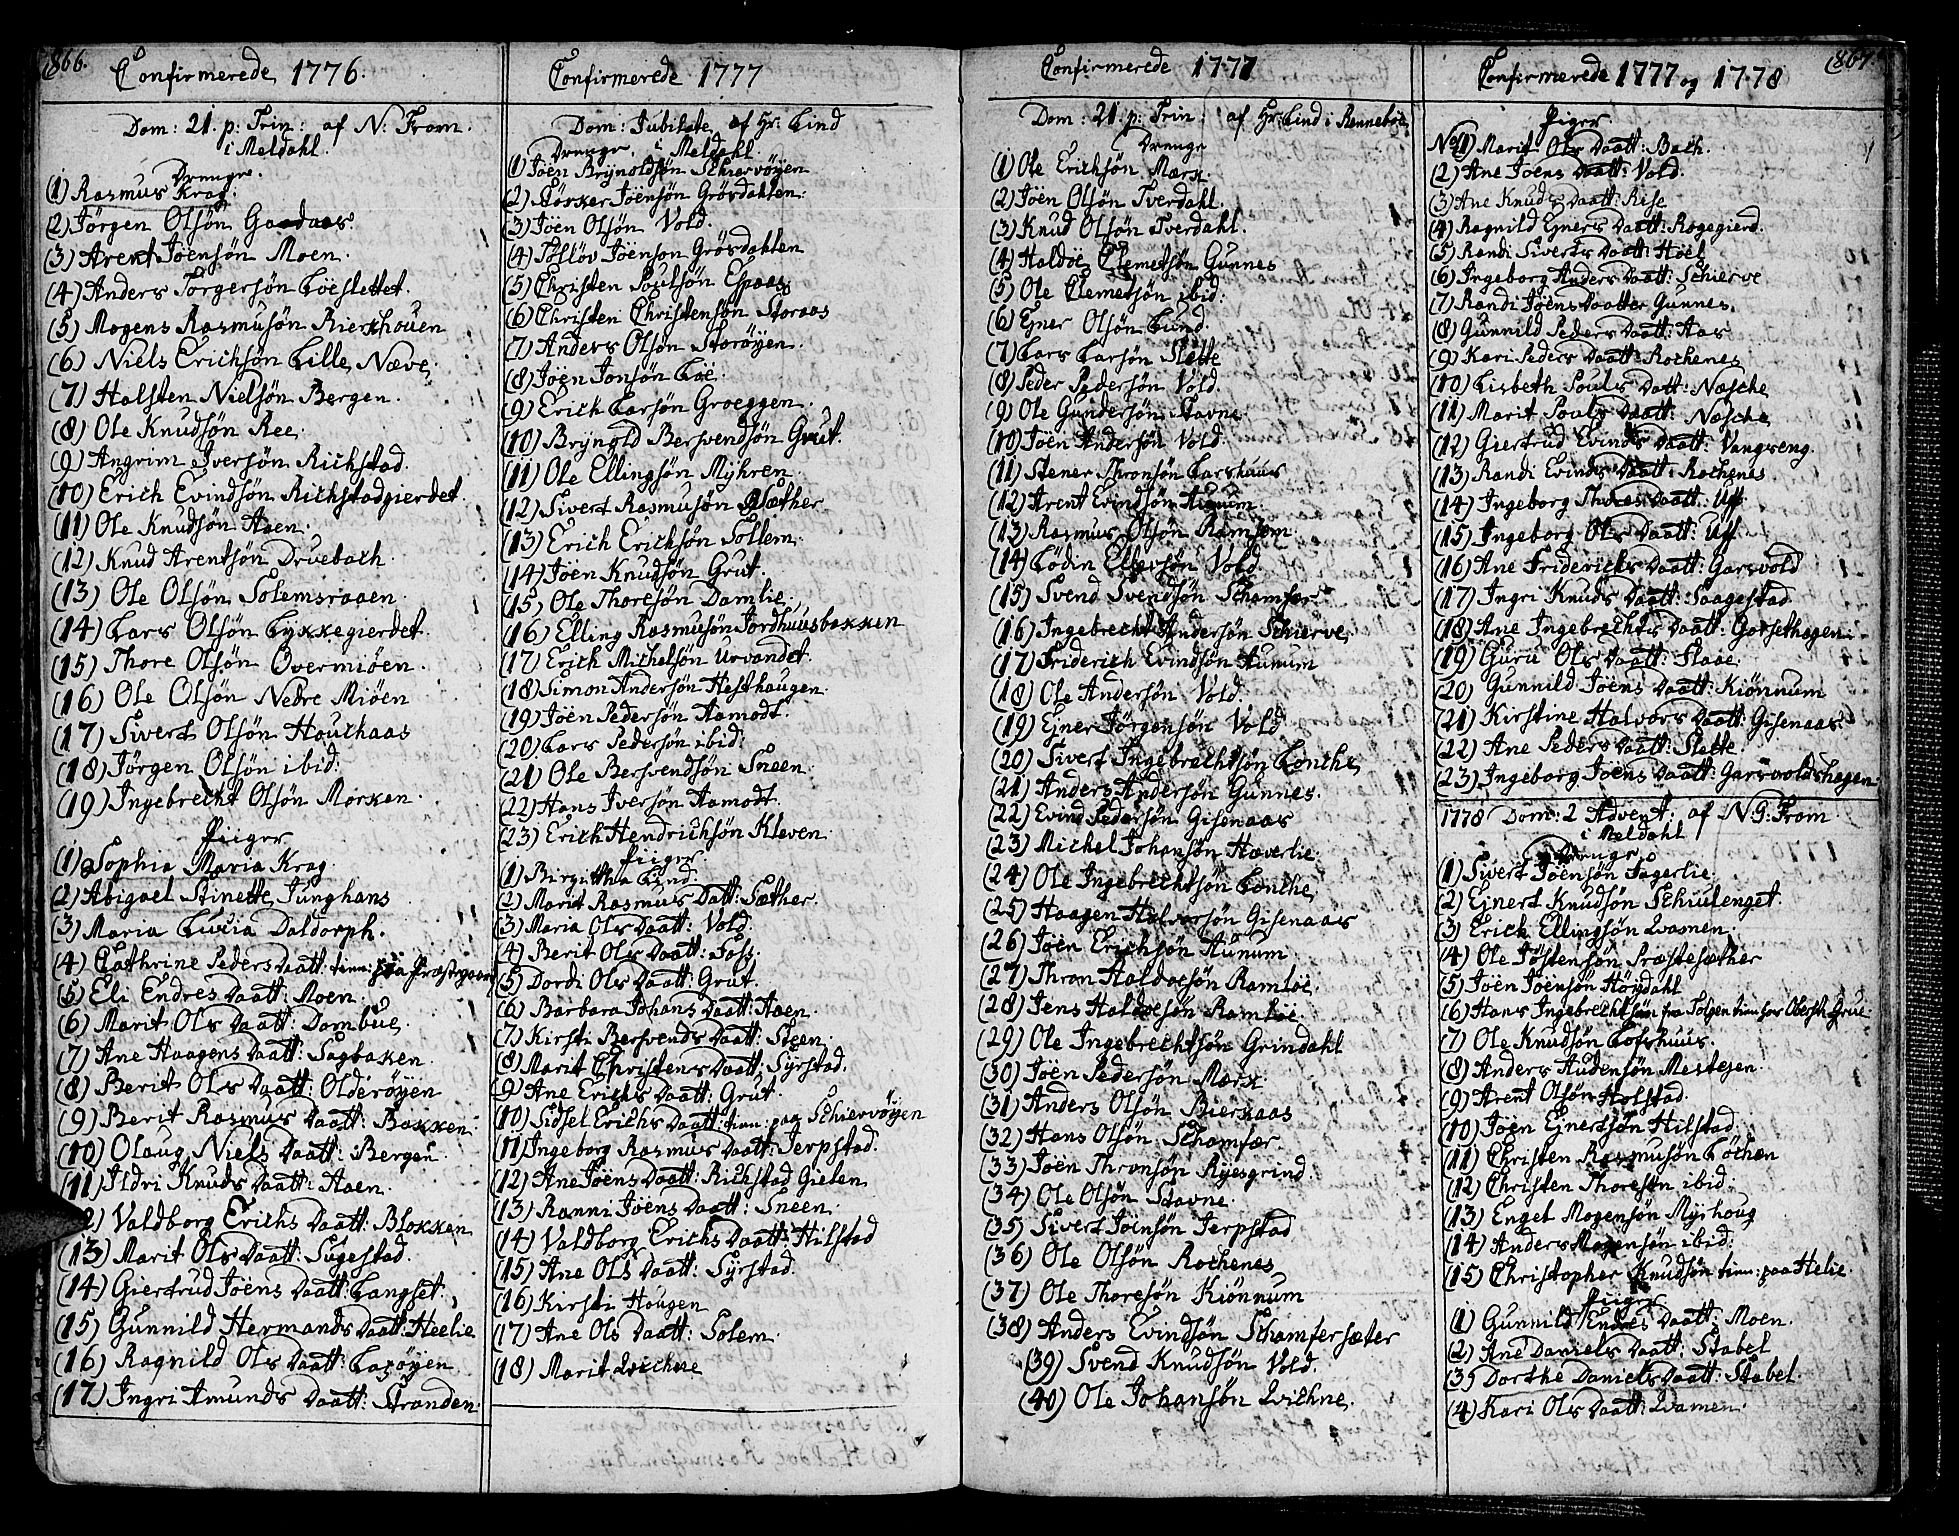 866.
Confirmerede 1776.
Dom: 21. p: Trin: af N: From.
i Meldahl.
Drenge.
(1) Rasmus Krag.
(2) Jörgen Olsön Gaadaas.
(3) Arent Jöensön Moen.
(4) Anders Torgersön Löeslettet.
(5) Mogens Rasmusön Bierkhouen
(6) Niels Erichsön Lille Næve.
(7) Halsten Nielsön Bergen.
(8) Ole Knudsön Ree.
(9) Angrim Iversön Richstad.
(10) Erich Evindsön Richstadgierdet.
(11) Ole Knudsön Aaen.
(12) Knud Arentsön Druebach.
(13) Ole Olsön Solemsraaen.
(14) Lars Olsön Lykkegierdet.
(15) Thore Olsön Overmiöen.
(16) Ole Olsön Nedre Miöen
(17) Sivert Olsön Houchaas
(18) Jörgen Olsön ibid.
(19) Ingebrecht Olsön Morken.
Piiger
(1) Sophia Maria Krag
(2) Abigael Stinette Junghans
(3) Maria Lucia Daldorph.
(4) Cathrine Peders Daatt: tien: paa Præstegaard
(5) Eli Endres Daatt: Moen.
(6) Marit Ols Daatt: Dombue.
(7) Ane Haagens Daatt: Sagbaken.
(8) Berit Ols Daatt: Olderöyen
(9) Berit Rasmus Daatt: Bakken.
(10) Olaug Niels Daatt: Bergen.
(11) Ildri Knuds Daatt: Aaen.
2) Valdborg Erichs Daatt: Blokken
(13) Marit Ols Daatt: Sugestad.
(14) Giertrud Jöens Daatt: Langset.
(15) Gunnild Hermands Daatt: Heelie
(16) Ragnild Ols Daatt: Lasöyen
(17) Ingri Amunds Daatt: Stranden.
Confirmerede 1777
Dom: Jubilate, af Hr: Lind
Drenge, i Meldahl.
(1) Jöen Brynoldsön Schiervöyen
(2) Störker Jöensön Grösdahlen.
(3) Jöen Olsön Vold.
(4) Töslöv Jöensön Grösdahlen
(5) Christen Poulsön Espaas
(6) Christen Christensön Storaas
(7) Anders Olsön Storöyen.
(8) Jöen Jonsön Loe.
(9) Erich Larsön Groeggen.
(10) Brynold Bersvendsön Grut.
(11) Ole Ellingsön Myhren.
(12) Sivert Rasmusön Sæther
(13) Erich Ericksön Sollem.
(14) Jöen Knudsön Grut.
(15) Ole Thoresön Damlie.
(16) Elling Rasmusön Jordhuusbakken
(17) Erich Michelsön Urvandet.
(18) Simon Andersön Hesthaugen.
(19) Jöen Pedersön Aamodt.
(20) Lars Pedersön ibid.
(21) Ole Bersvendsön Sneen.
(22) Hans Iversön Aamodt.
(23) Erich Hendrichsön Kleven.
Piiger.
(1) Birgittha Lind.
(2) Marit Rasmus Datt: Sæther.
(3) Maria Ols Daatt: Vold.
(4) Berit Ols Daatt: Foss.
(5) Dordi Ols Daatt: Grut.
(6) Barbara Johans Daatt: Aaen.
(7) Kirsti Bersvends Daatt: Steen.
(8) Marit Christens Daatt: Syrstad.
(9) Ane Erichs Daatt: Grut.
(10) Sidsel Erichs Daatt: tien: paa Schiervöyen
(11) Ingeborg Rasmus Daatt: Jerpstad.
(12) Ane Jöens Daatt: Richstad Gielen.
(13) Ranni Jöens Daatt: Sneen.
(14) Valdborg Erichs Daatt: Hilstad
(15) Ane Ols Daatt: Syrstad.
(16) Kirsti Hougen
(17) Ane Ols Daatt: Solem.
(18) Marit Wichne
Confirmerede 1777
Dom: 21. p: Trin: af Hr: Lind i Renneboe.
Drenge
(1) Ole Erichsön Mærk.
(2) Jöen Olsön Tverdahl.
(3) Knud Olsön Tverdahl.
(4) Haldoe Clemetsön Gunnes
(5) Ole Clemetsön ibid.
(6) Ejner Olsön Lund.
(7) Lars Larsön Slette
(8) Peder Pedersön Vold.
(9) Ole Gundersön Stavne.
(10) Jöen Andersön Vold.
(11) Stener Thronsön Larshuus
(12) Arent Evindsön Aunum.
(13) Rasmus Olsön Ramsem
(14) Lödin Ellersön Vold.
(15) Svend Svendsön Schamfær
(16) Ingebrecht Andersön Schierve
(17) Friderich Evindsön Aunum
(18) Ole Andersön Vold.
(19) Ejner Jörgensön Vold
(20) Sivert Ingebrechtsön Lonche
(21) Anders Andersön Gunnes.
(22) Evind Pedersön Gisenaas
(23) Michel Johansön Hæverlie.
(24) Ole Ingebrechtsön Lonche
(25) Haagen Halvorsön Gisenaas
(26) Jöen Erichsön Aunum.
(27) Thron Haldoesön Ramlöe.
(28) Jens Haldoesön Ramlöe.
(29) Ole Ingebrechtsön Grindahl
(30) Jöen Pedersön Mærk.
(31) Anders Olsön Bierkaas
(32) Hans Olsön Schamfær.
(33) Jöen Thronsön Ryesgrind.
(34) Ole Olsön Stavne.
(35) Sivert Jöensön Jerpstad
(36) Ole Olsön Rochenes
(37) Ole Thoresön Kiönnum
(38) Anders Evindsön Schamfersæter
(39) Svend Knudsön Vold.
(40) Ole Johansön Wichne.
867.
Confirmerede 1777 og 1778
Piger
No (1) Marit Ols Daatt: Bach.
(2) Ane Jöens Daatt: Vold.
(3) Ane Knuds Daatt: Rise
(4) Ragnild Ejners Daatt: Rogegierd.
(5) Randi Siverts Daatt: Hoel
(6) Ingeborg Anders Daatt: Schierve
(7) Randi Jöens Daatter Gunnes.
(8) Gunnild Peders Daatt: Aas
(9) Kari Peders Daatt: Rochenes
(10) Lisbeth Pouls Datt: Næsche
(11) Marit Pouls Daatt: Næsche
(12) Giertrud Evinds Daatt: Vangseng.
(13) Randi Evinds Daatt: Rochenes
(14) Ingeborg Thores Daatt: Uf
(15) Ingeborg Ols Daatt: Uf
(16) Ane Fridericks Daatt: Garsvold
(17) Ingri Knuds Daatt: Saagestad
(18) Ane Ingebrechts Daatt: Gorsethagen.
(19) Guru Ols Daatt: Staae.
(20) Gunnild Jöens Daatt: Kiönnum
(21) Kirstine Halvors Daatt: Gisenaas.
(22) Ane Peders Daatt: Slette.
(23) Ingeborg Jöens Daatt: Garsvoldshagen.
1778 Dom: 2 Advent: af N: G: From.
i Meldahl
Drenge
(1) Sivert Jöensön Fagerlie.
(2) Ejnert Knudsön Schiulenget.
(3) Erick Ellingsön Wamen.
(4) Ole Töstensön Præstesæther
(5) Jöen Jöensön Hörgdahl
(6) Hans Ingebrechtsön fra Tolgen tien: hos Oberst: Grue
(7) Ole Knudsön Lofshuus.
(8) Anders Audensön Mestejen.
(9) Arent Olsön Holstad.
(10) Jöen Ejnertsön Hilstad.
(11) Christen Rasmusön Löchen
(12) Christen Thoresön ibid.
(13) Engel Mogensön Myrhoug
(14) Anders Mogensön ibid.
(15) Christopher Knudsön tien: paa Helie.
Piiger
(1) Gunnild Endres Daatt: Moen.
(2) Ane Daniels Daatt: Stabel
(3) Dorthe Daniels Daatt: Stabel.
(4) Kari Ols Daatt: Wamen.